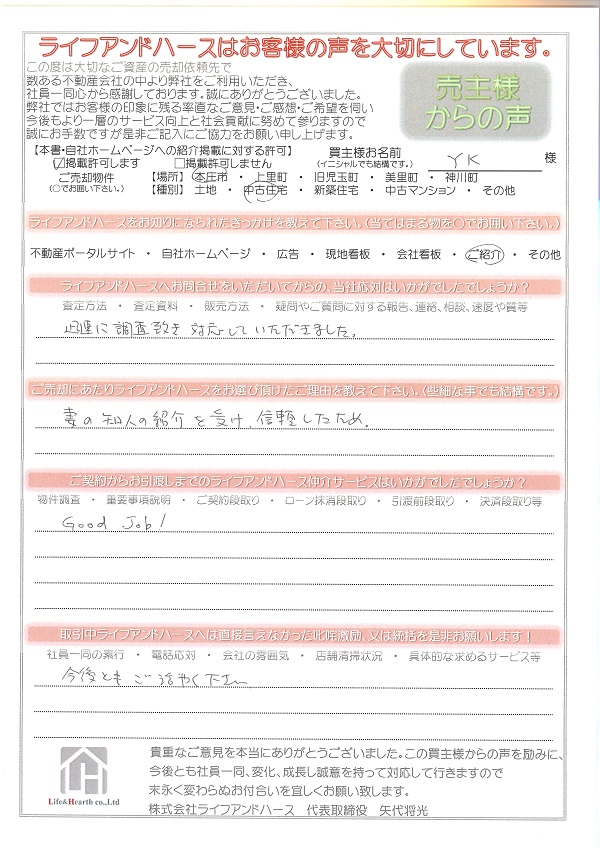 ライフアンドハースはお客様の声を大切にしています。
この度は大切なご資産の売却依頼先で
数ある不動産会社の中より弊社をご利用いただき、
社員一同心から感謝しております。誠にありがとうございました。
弊社ではお客様の印象に残る率直なご意見・ご感想・ご希望を伺い
今後もより一層のサービス向上と社会貢献に努めて参りますので
誠にお手数ですが是非ご記入にご協力をお願い申し上げます。
売主様
からの声
【本書・自社ホームページへの紹介掲載に対する許可】
☑掲載許可します □掲載許可しません
買主様お名前
(イニシャルでも結構です。)
YK 様
ご売却物件
(○でお囲い下さい。)
【場所】 本庄市 ・ 上里町 ・ 旧児玉町 ・ 美里町 ・ 神川町
【種別】 土地 ・ 中古住宅 ・ 新築住宅 ・ 中古マンション ・ その他
ライフアンドハースをお知りになられたきっかけを教えて下さい。(当てはまる物を○でお囲い下さい。)
不動産ポータルサイト ・ 自社ホームページ ・ 広告 ・ 現地看板 ・ 会社看板 ・ ご紹介 ・ その他
ライフアンドハースへお問合せをいただいてからの、当社応対はいかがでしたでしょうか?
査定方法 ・ 査定資料 ・ 販売方法 ・ 疑問やご質問に対する報告、連絡、相談、速度や質等
迅速に調査頂き 対応していただきました。
ご売却にあたりライフアンドハースをお選び頂けたご理由を教えて下さい。(些細な事でも結構です。)
妻の知人の紹介を受け、信頼したため。
ご契約からお引渡しまでのライフアンドハース仲介サービスはいかがでしたでしょうか?
物件調査 ・ 重要事項説明 ・ ご契約段取り ・ ローン抹消段取り ・ 引渡前段取り ・ 決済段取り等
Good Job!
取引中ライフアンドハースへは直接言えなかった叱咤激励、又は統括を是非お願いします!
社員一同の素行 ・ 電話応対 ・ 会社の雰囲気 ・ 店舗清掃状況 ・ 具体的な求めるサービス等
今後とも ご活やく下さい
貴重なご意見を本当にありがとうございました。この買主様からの声を励みに、
今後とも社員一同、変化、成長し誠意を持って対応して行きますので
末永く変わらぬお付合いを宜しくお願い致します。
Life&Hearth co.,Ltd
株式会社ライフアンドハース 代表取締役 矢代将光